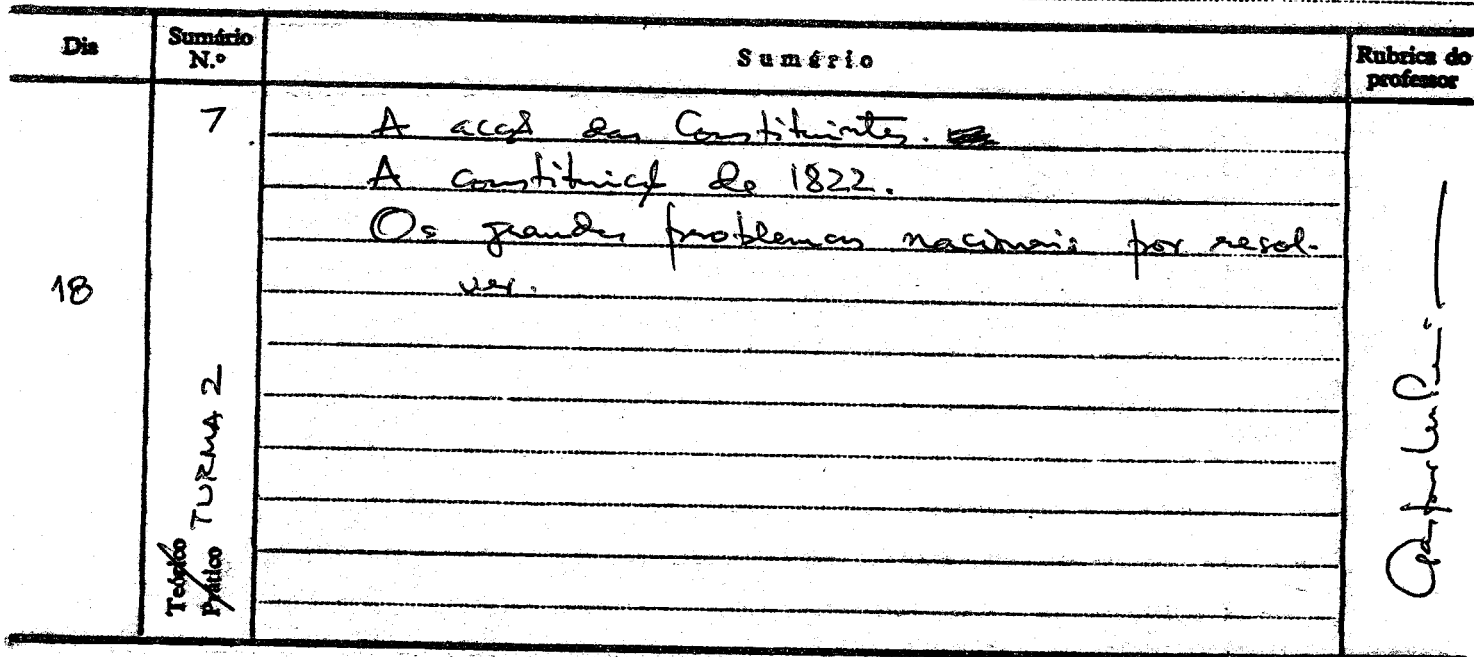 Dia
Sumário N.º
Sumário
Rubrica do professor
18
7
Teórico
Prático
TURMA 2
A acção das Constituintes.
A constituição de 1822.
Os grandes problemas nacionais por resol-
ver.